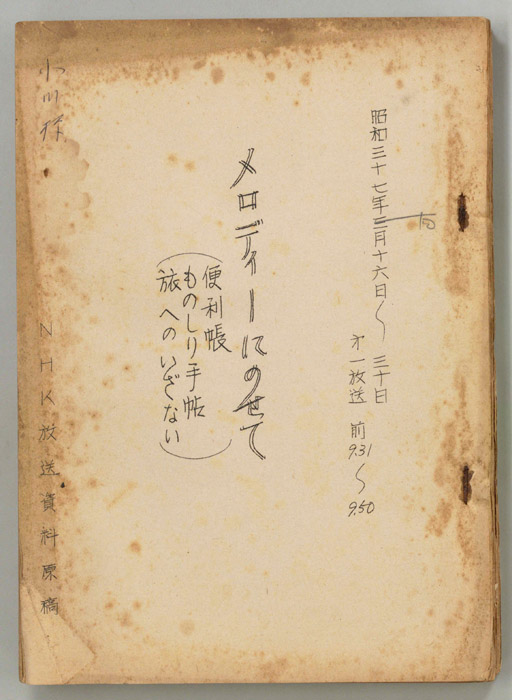 昭和三十七年三月十六日〜三十日
第一放送 前9.31〜9.50
メロディーにのせて
(便利帳
ものしり手帖
旅へのいざない)
小川様
NHK放送資料原稿